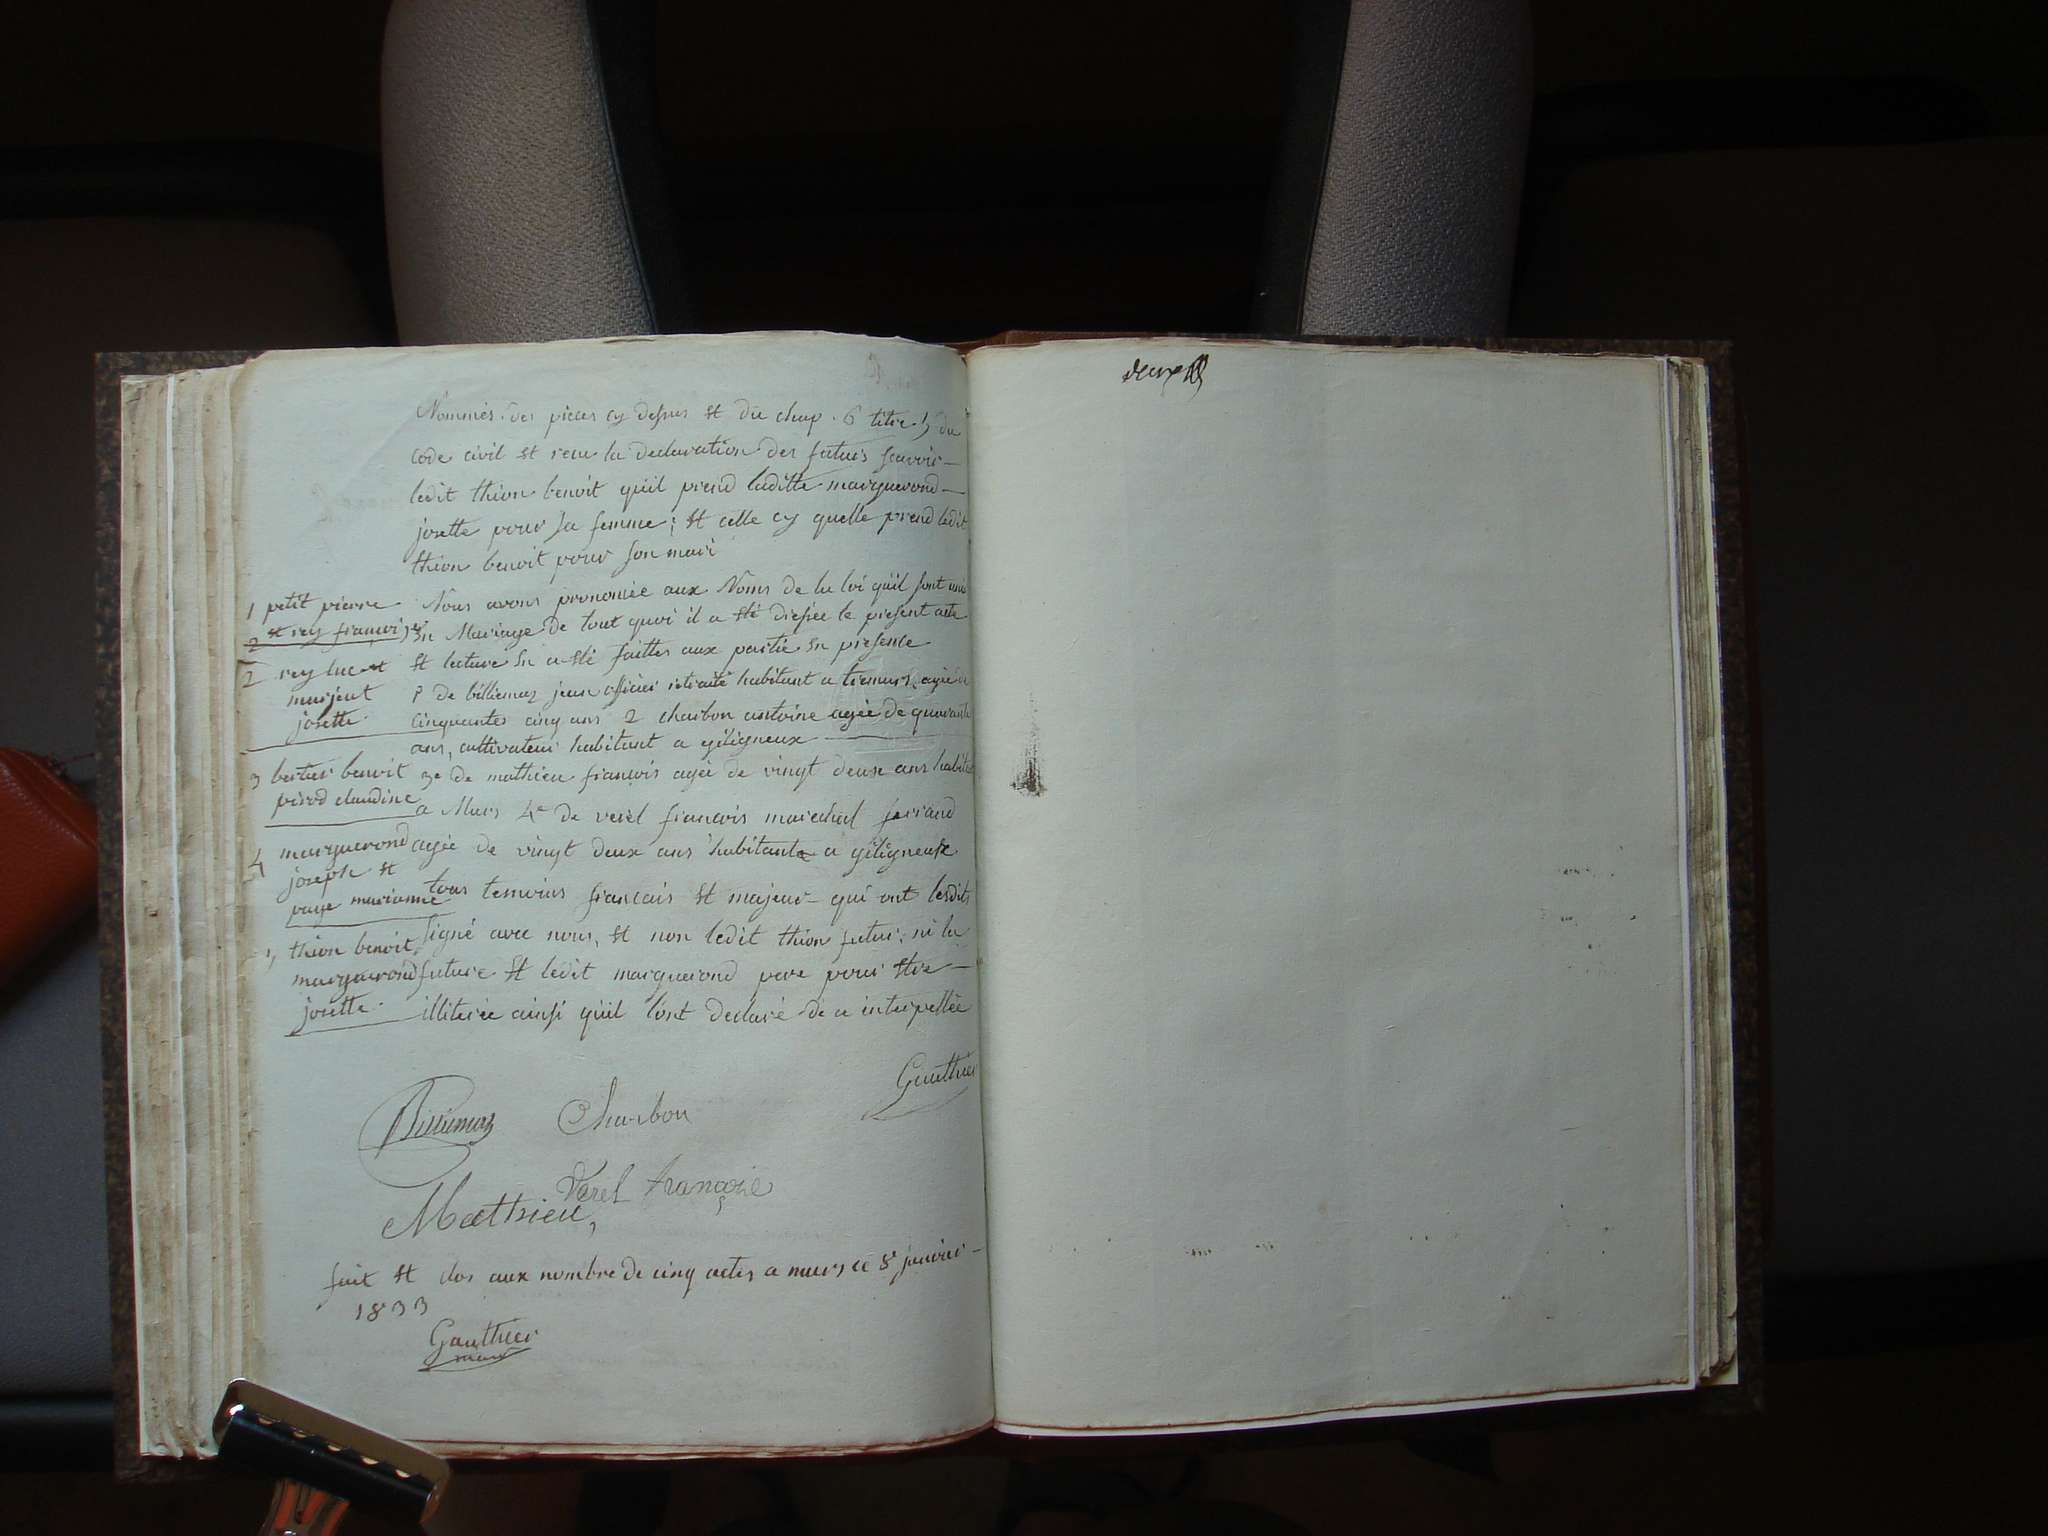 Nommés des pieces cy dessus et du chap. 6 titre 5 du
code civil et reçu la declaration des futurs scavoir
ledit thion benoit qu'il prend laditte marguerond
josette pour sa femme; et celle cy quelle prend ledit
thion benoit pour son mari
Nous avons prononcée aux Noms de la loi qu'il sont unis
en Mariage de tout quoi il a été dressée le present acte
et lecture en a été faittes aux partie en presence
de billiemaz jean officier retraité habitant a tremurs agée de
cinquantes cinq ans 2 charbon antoine agée de quarante
ans, cultivateur habitant a géligneux
3e de mathieu françois agée de vingt deux ans habitant
a Murs 4e de verel francois marechal ferrand
agée de vingt deux ans habitant a géligneux
tous temoins francais et majeur qui ont lesdits
signé avec nous, et non ledit thion futur, ni la
future et ledit marguerond pere pour etre
illiterée ainsi qu'il l'ont declaré de ce interpellée
1 petit pierre
et rey françoise
2 rey luc et
marjeut
josette
3 bertier benoit
pirod claudine
4 marguerond
joseph et
paye marianne
5 thion benoit
marguerond
josette
Gauthier
Billiemaz Charbon
Verel françois
Mathieu
fait et clos aux nombre de cinq actes a murs ce 8 janvier
1833
Gauthier
maire